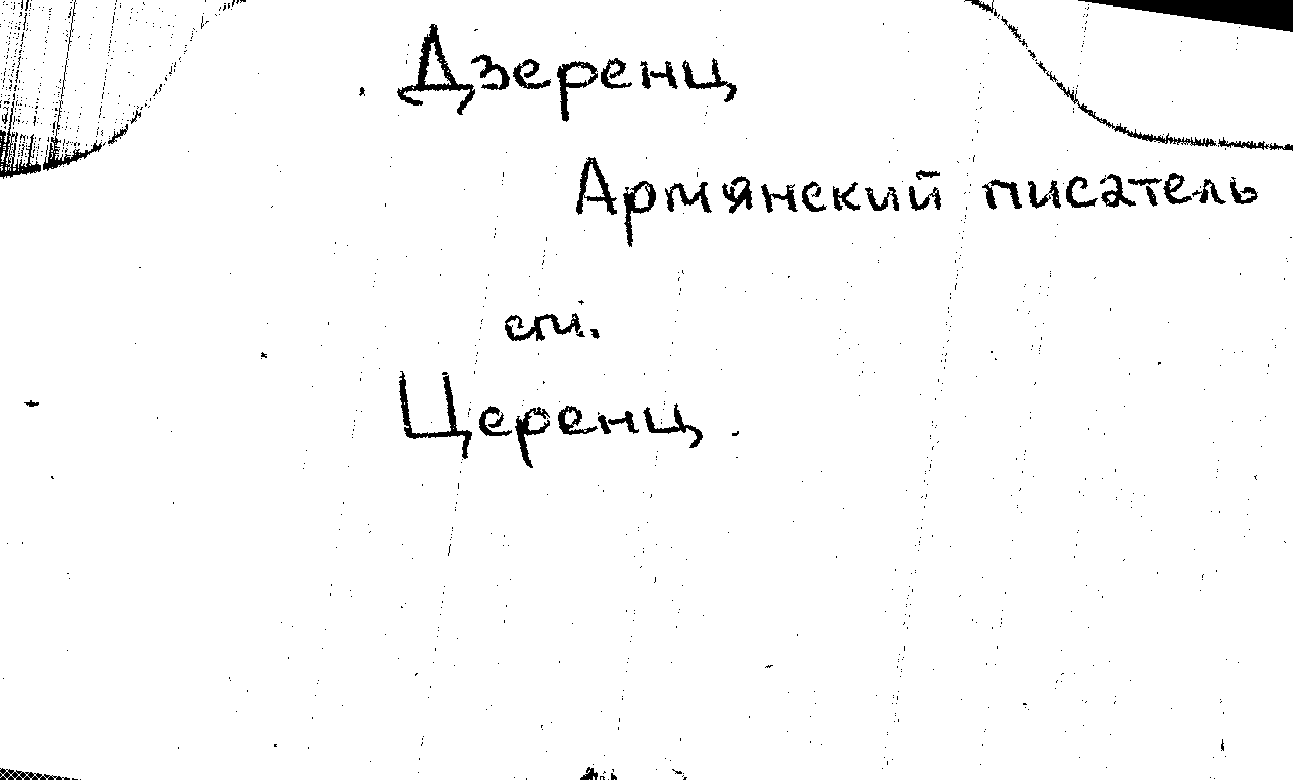 Дзеренц
Армянский писатель
см.
Церенц.